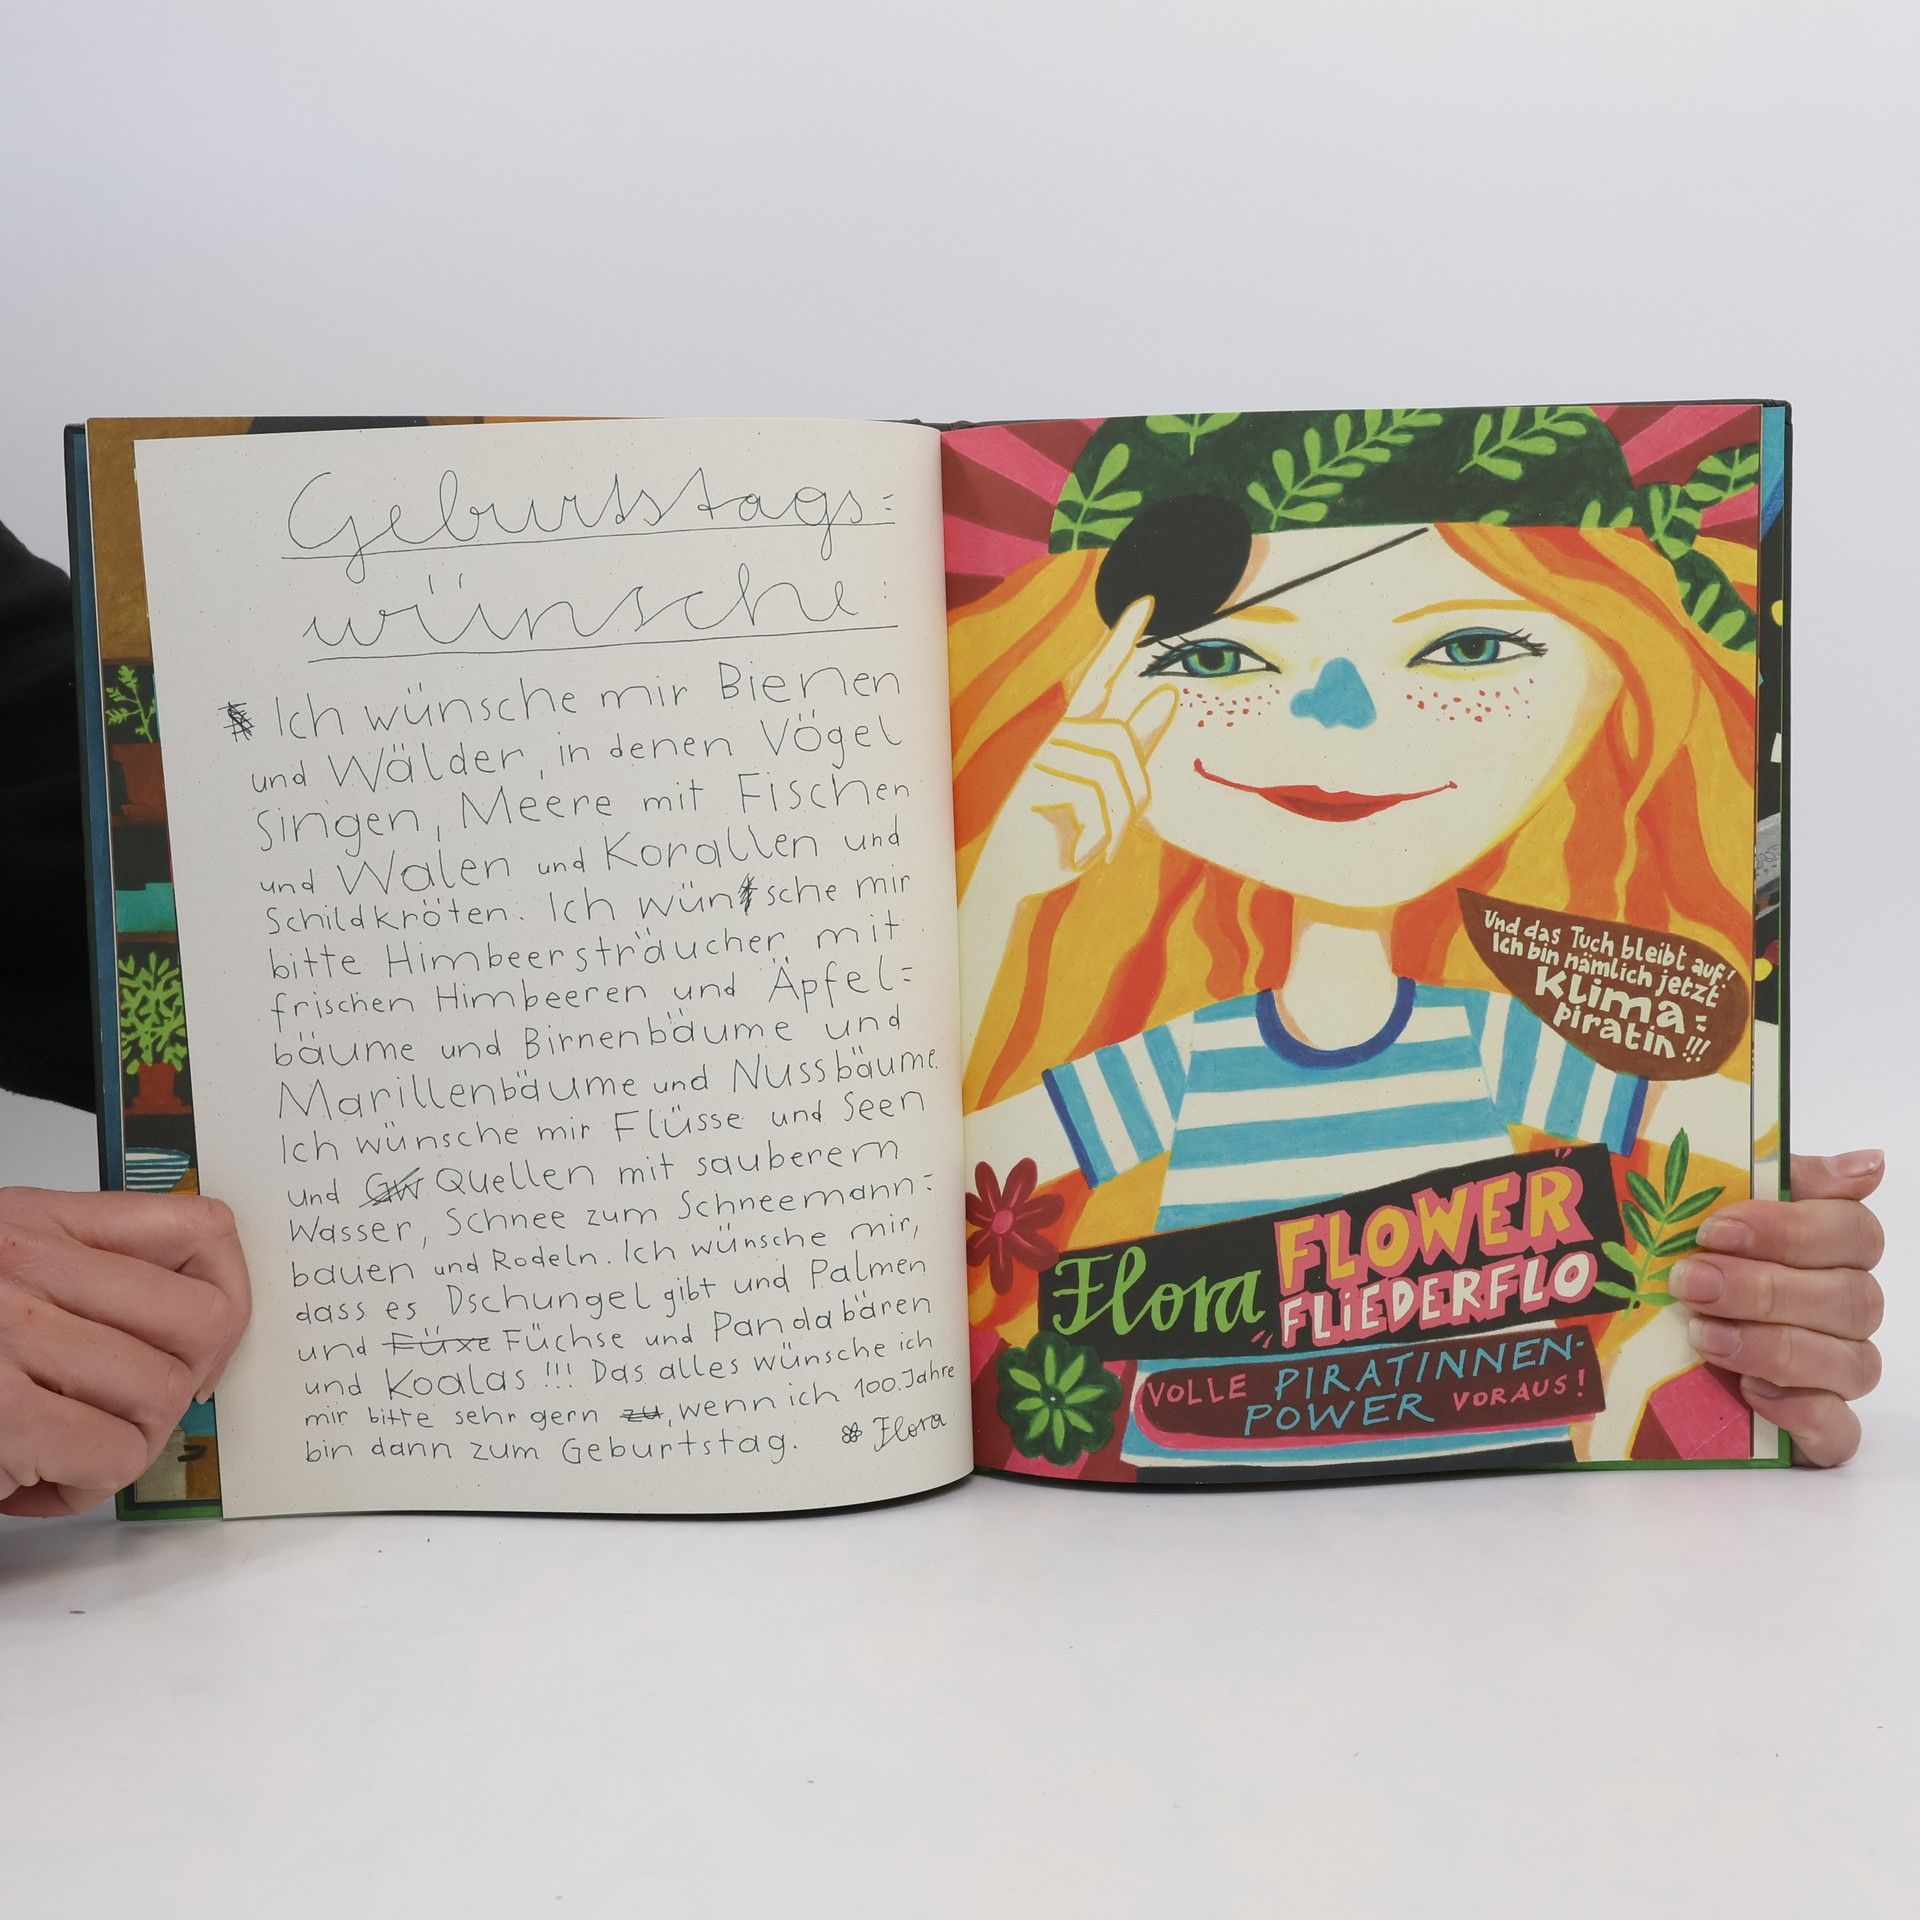 Geburtstags=
wünsche:
Ich wünsche mir Bienen
und Wälder, in denen Vögel
singen, Meere mit Fischen
und Walen und Korallen und
Schildkröten. Ich wünsche mir
bitte Himbeersträucher mit
frischen Himbeeren und Äpfel=
bäume und Birnenbäume und
Marillenbäume und Nussbäume.
Ich wünsche mir Flüsse und Seen
und GW Quellen mit sauberem
Wasser, Schnee zum Schneemann=
bauen und Rodeln. Ich wünsche mir,
dass es Dschungel gibt und Palmen
und Füxe Füchse und Pandabären
und Koalas !!! Das alles wünsche ich
mir bitte sehr gern zu, wenn ich 100 Jahre
bin dann zum Geburtstag. Flora
Und das Tuch bleibt auf!
Ich bin nämlich jetzt
Klima=
piratin!!!
Flora "FLOWER"
FLIEDERFLO
VOLLE PIRATINNEN-
POWER VORAUS!